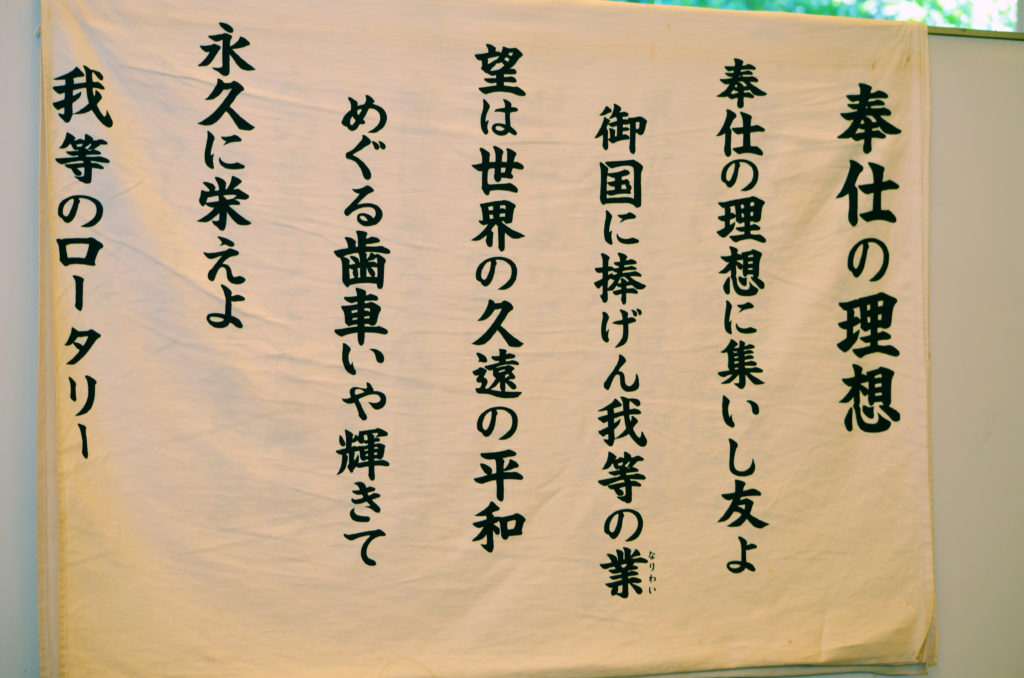 奉仕の理想
奉仕の理想に集いし友よ
御国に捧げん我等の業
なりわい
望は世界の久遠の平和
めぐる歯車いや輝きて
永久に栄えよ
我等のロータリー